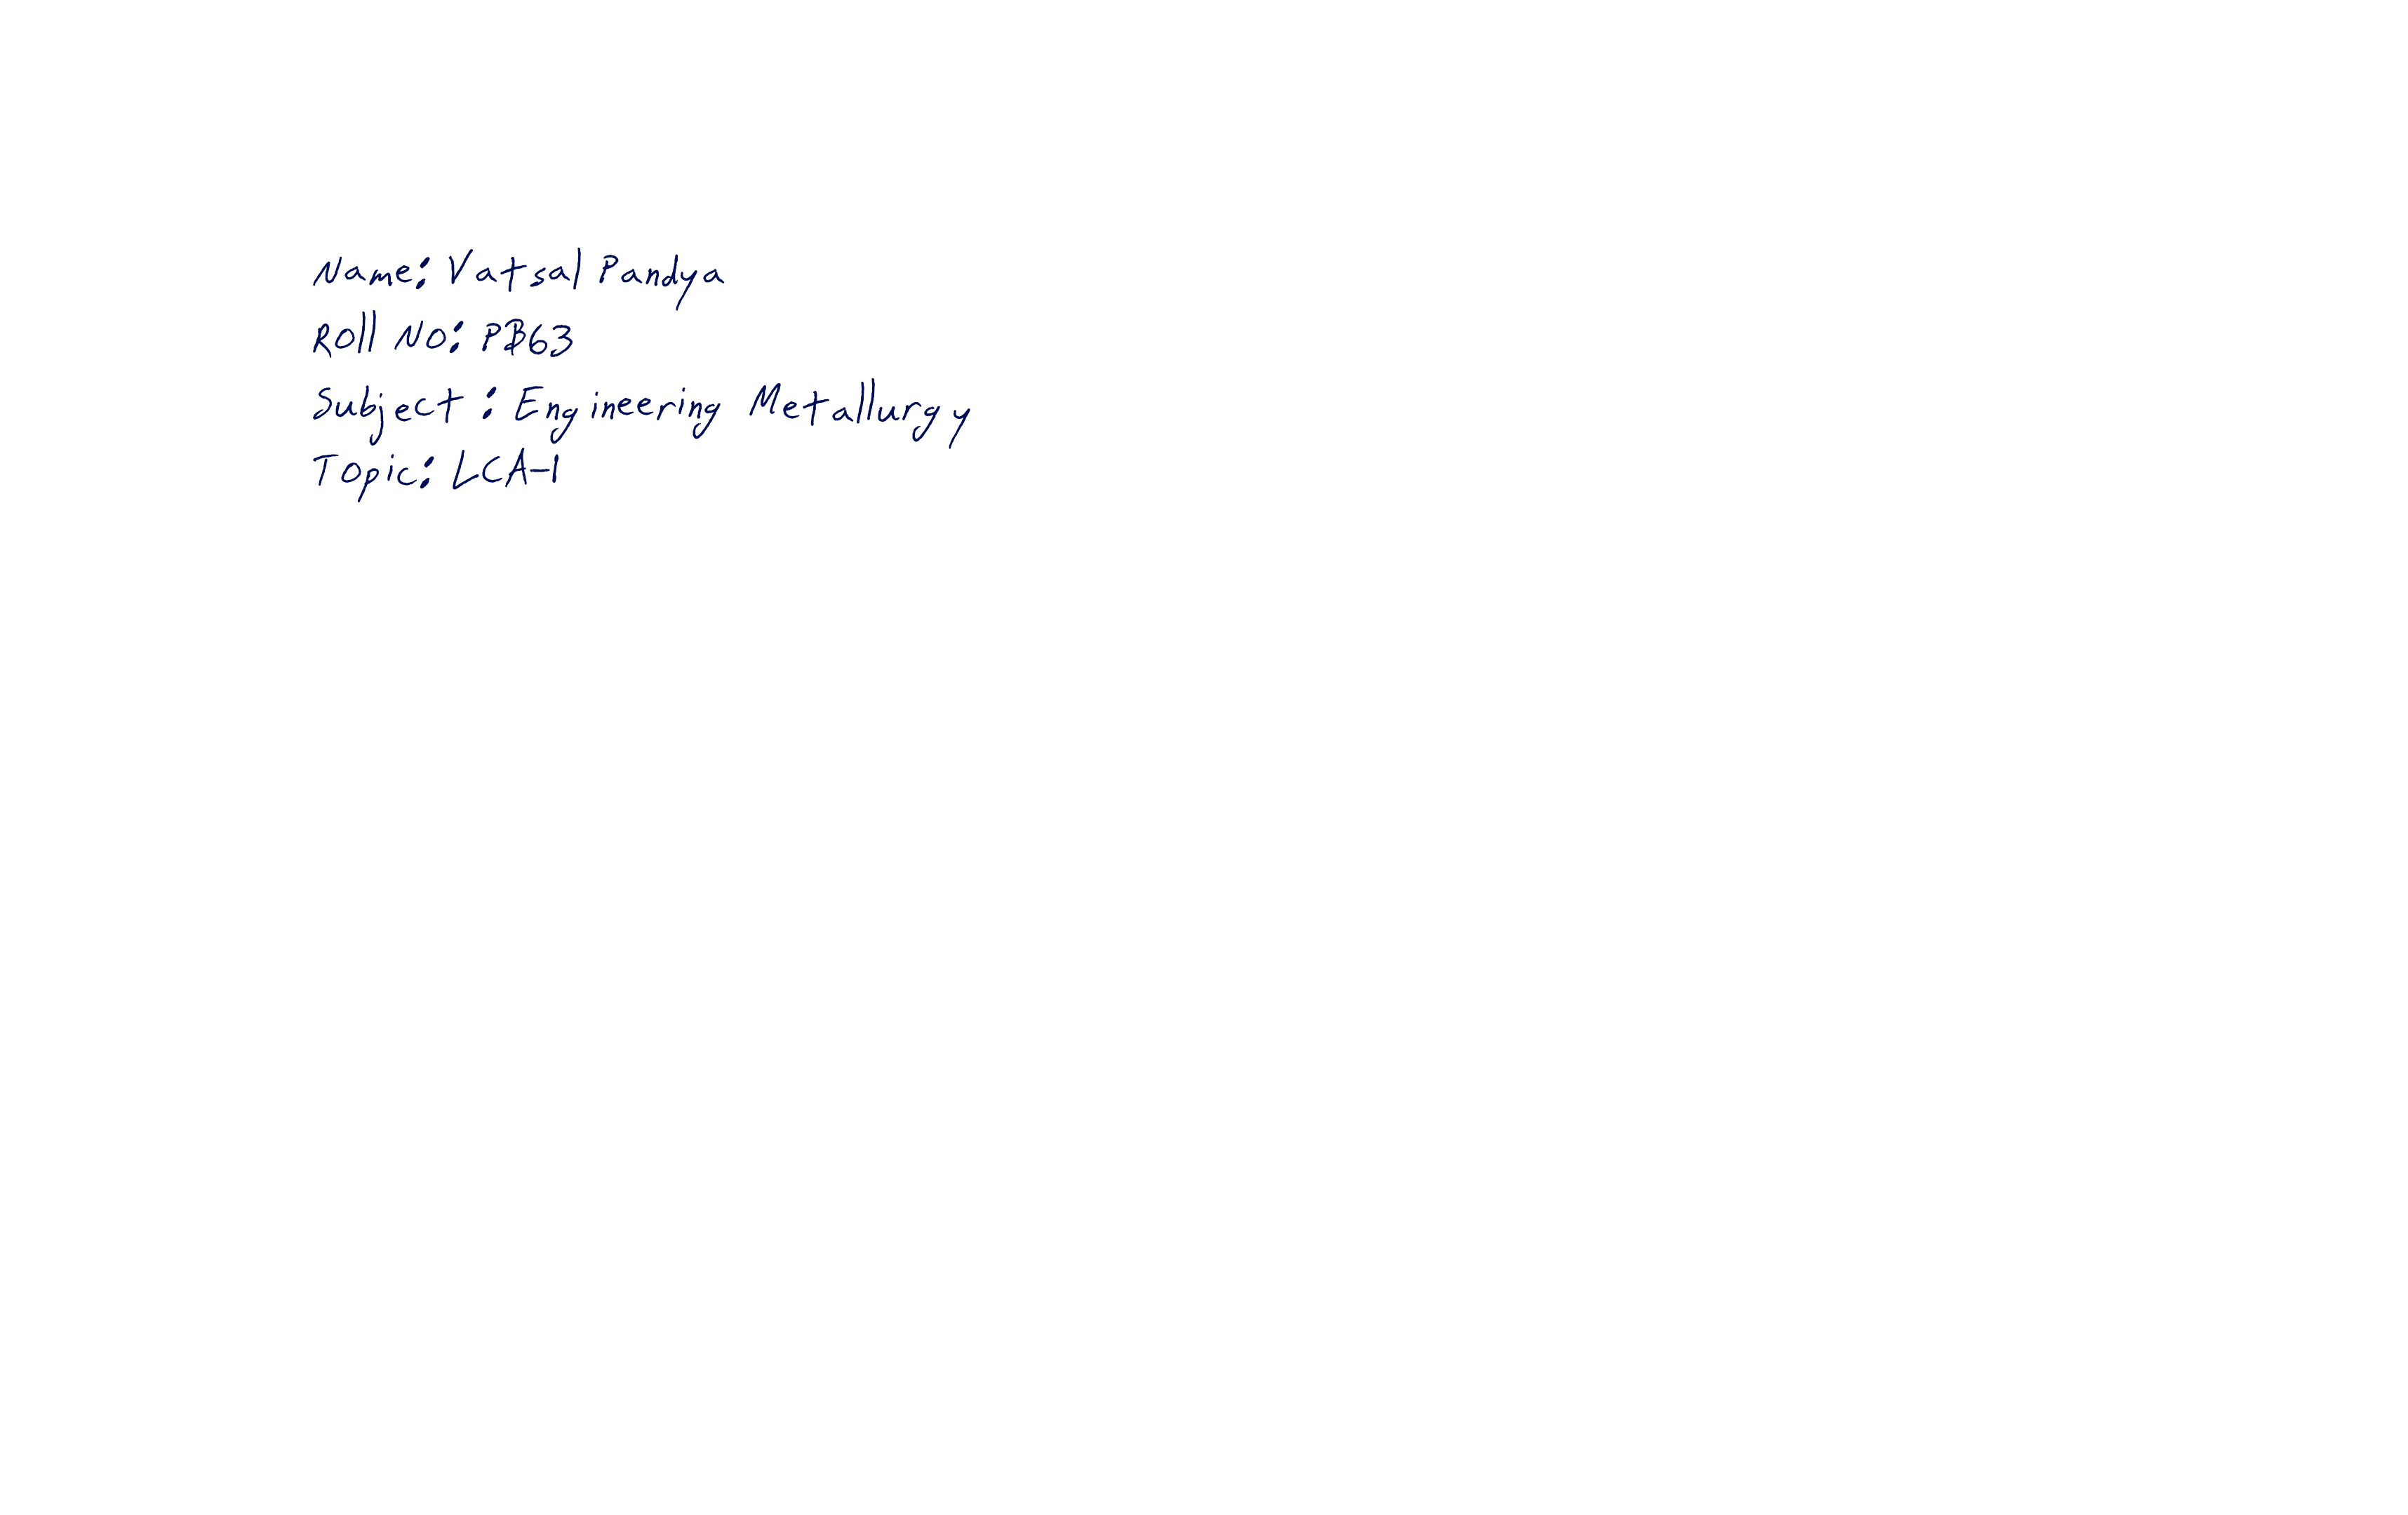 Name: Vatsal Pandya
Roll No: PB63
Subject : Engineering Metallurgy
Topic: LCA-1